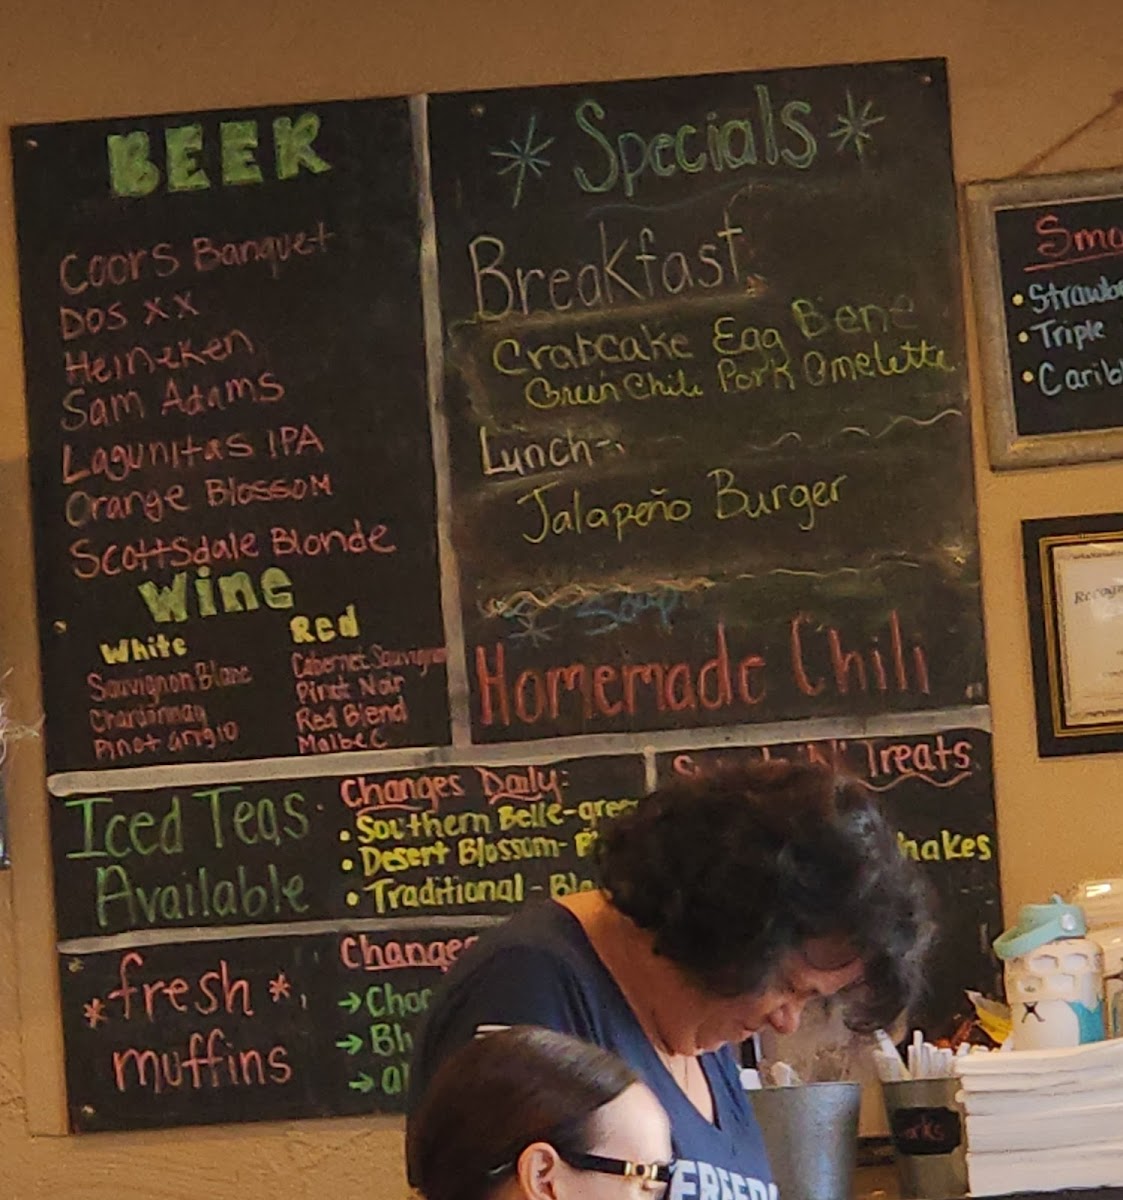 BEER
Coors Banquet
Dos XX
Heineken
Sam Adams
Lagunitas IPA
Orange Blossom
Scottsdale Blonde
Wine
White
Sauvignon Blanc
Chardonnay
Pinot Grigio
Red
Cabernet Sauvignon
Pinot Noir
Red Blend
Malbec
* Specials *
Breakfast
Crabcake Egg Bene
Green Chili Pork Omelette
Lunch-
Jalapeño Burger
* Soup
Homemade Chili
Iced Teas
Available
Changes Daily:
• Southern Belle-gree
• Desert Blossom-
• Traditional - Bla
Treats
hakes
*fresh*
muffins
Changes
→Choc
→Bl
→al
Smo
• Strawb
• Triple
• Carib
Recogn